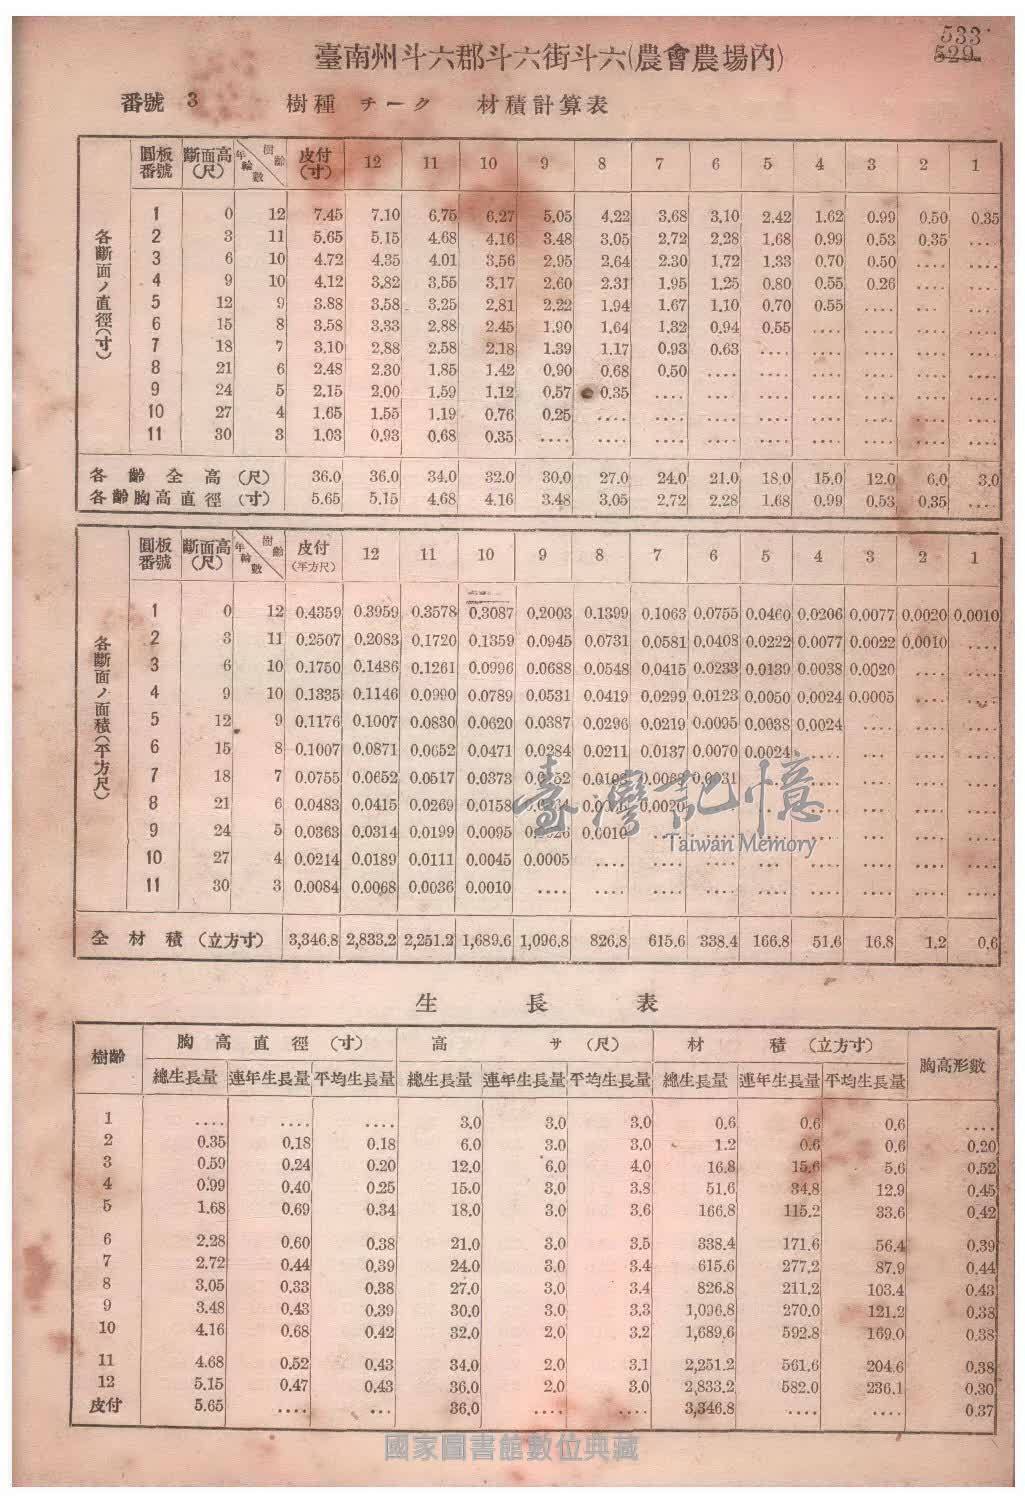 533
529
臺南州斗六郡斗六街斗六(農會農場內)
番號 3 樹種 チーク 材積計算表
圓板番號 斷面高(尺) 樹齡 年輪數 皮付(寸) 12 11 10 9 8 7 6 5 4 3 2 1
各斷面ノ直徑(寸)
1 0 12 7.45 7.10 6.75 6.27 5.05 4.22 3.68 3.10 2.42 1.62 0.99 0.50 0.35
2 3 11 5.65 5.15 4.68 4.16 3.48 3.05 2.72 2.28 1.68 0.99 0.53 0.35 ....
3 6 10 4.72 4.35 4.01 3.56 2.95 2.64 2.30 1.72 1.33 0.70 0.50 .... ....
4 9 10 4.12 3.82 3.55 3.17 2.60 2.31 1.95 1.25 0.80 0.55 0.26 .... ....
5 12 9 3.88 3.58 3.25 2.81 2.22 1.94 1.67 1.10 0.70 0.55 .... .... ....
6 15 8 3.58 3.33 2.88 2.45 1.90 1.64 1.32 0.94 0.55 .... .... .... ....
7 18 7 3.10 2.88 2.58 2.18 1.39 1.17 0.93 0.63 .... .... .... .... ....
8 21 6 2.48 2.30 1.85 1.42 0.90 0.68 0.50 .... .... .... .... .... ....
9 24 5 2.15 2.00 1.59 1.12 0.57 0.35 .... .... .... .... .... .... ....
10 27 4 1.65 1.55 1.19 0.76 0.25 .... .... .... .... .... .... .... ....
11 30 3 1.03 0.93 0.68 0.35 .... .... .... .... .... .... .... .... ....
各齡全高(尺) 36.0 36.0 34.0 32.0 30.0 27.0 24.0 21.0 18.0 15.0 12.0 6.0 3.0
各齡胸高直徑(寸) 5.65 5.15 4.68 4.16 3.48 3.05 2.72 2.28 1.68 0.99 0.53 0.35 ....
圓板番號 斷面高(尺) 樹齡 年輪數 皮付(平方尺) 12 11 10 9 8 7 6 5 4 3 2 1
各斷面ノ面積(平方尺)
1 0 12 0.4359 0.3959 0.3578 0.3087 0.2003 0.1399 0.1063 0.0755 0.0460 0.0206 0.0077 0.0020 0.0010
2 3 11 0.2507 0.2083 0.1720 0.1359 0.0945 0.0731 0.0581 0.0408 0.0222 0.0077 0.0022 0.0010 ....
3 6 10 0.1750 0.1486 0.1261 0.0996 0.0688 0.0548 0.0415 0.0233 0.0139 0.0038 0.0020 .... ....
4 9 10 0.1335 0.1146 0.0990 0.0789 0.0531 0.0419 0.0299 0.0123 0.0050 0.0024 0.0005 .... ....
5 12 9 0.1176 0.1007 0.0830 0.0620 0.0387 0.0296 0.0219 0.0095 0.0038 0.0024 .... .... ....
6 15 8 0.1007 0.0871 0.0652 0.0471 0.0284 0.0211 0.0137 0.0070 0.0024 .... .... .... ....
7 18 7 0.0755 0.0652 0.0517 0.0373 .... .... .... .... ....
8 21 6 0.0483 0.0415 0.0269 0.0158 0.0020 .... .... .... ....
9 24 5 0.0363 0.0314 0.0199 0.0095 0.0010 .... .... .... .... .... ....
10 27 4 0.0214 0.0189 0.0111 0.0045 0.0005 .... .... .... .... .... .... .... ....
11 30 3 0.0084 0.0068 0.0036 0.0010 .... .... .... .... .... .... .... .... ....
臺灣記憶
Taiwan Memory
全材積(立方寸) 3,346.8 2,833.2 2,251.2 1,689.6 1,096.8 826.8 615.6 338.4 166.8 51.6 16.8 1.2 0.6
生長表
樹齡 胸高直徑(寸) 高サ(尺) 材積(立方寸) 胸高形數
總生長量 連年生長量 平均生長量 總生長量 連年生長量 平均生長量 總生長量 連年生長量 平均生長量
1 .... .... .... 3.0 3.0 3.0 0.6 0.6 0.6 ....
2 0.35 0.18 0.18 6.0 3.0 3.0 1.2 0.6 0.6 0.20
3 0.59 0.24 0.20 12.0 6.0 4.0 16.8 15.6 5.6 0.52
4 0.99 0.40 0.25 15.0 3.0 3.8 51.6 34.8 12.9 0.45
5 1.68 0.69 0.34 18.0 3.0 3.6 166.8 115.2 33.6 0.42
6 2.28 0.60 0.38 21.0 3.0 3.5 338.4 171.6 56.4 0.39
7 2.72 0.44 0.39 24.0 3.0 3.4 615.6 277.2 87.9 0.44
8 3.05 0.33 0.38 27.0 3.0 3.4 826.8 211.2 103.4 0.43
9 3.48 0.43 0.39 30.0 3.0 3.3 1,096.8 270.0 121.2 0.38
10 4.16 0.68 0.42 32.0 2.0 3.2 1,689.6 592.8 169.0 0.38
11 4.68 0.52 0.43 34.0 2.0 3.1 2,251.2 561.6 204.6 0.38
12 5.15 0.47 0.43 36.0 2.0 3.0 2,833.2 582.0 236.1 0.30
皮付 5.65 .... ... 36.0 .... .... 3,346.8 .... .... 0.37
國家圖書館數位典藏